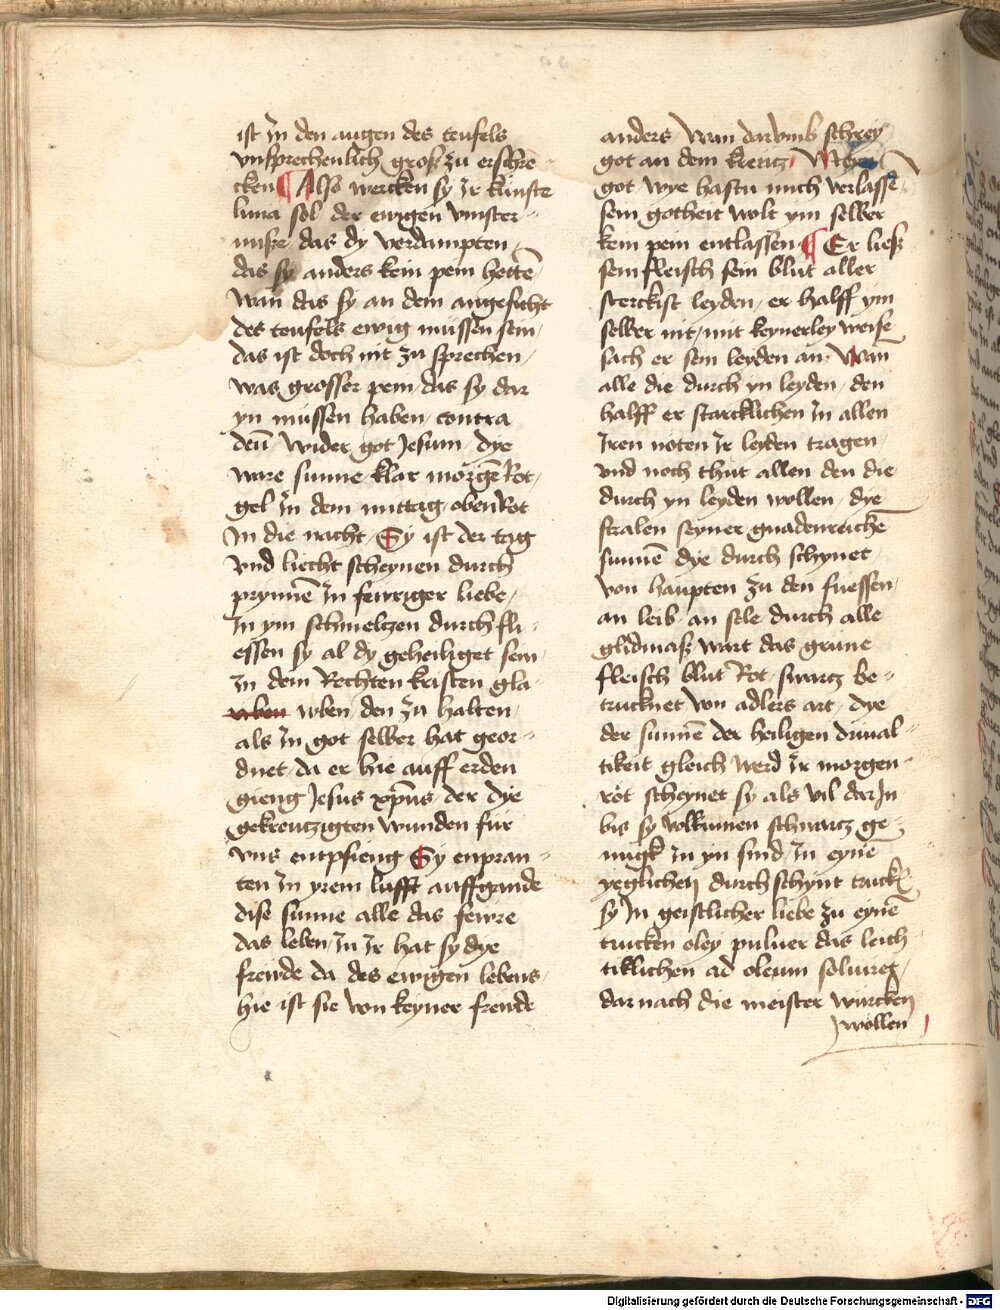 ist jn den augen des teufels
vnsprechenlich groß zu erschre-
cken ¶ Also wercken sy jr kunste
luna sol der ewigen vinster-
nuße das dy verdampten /
das sy anders kein pein hettē
wan das sy an dem angesicht
des teufels ewig müssen sein /
das ist doch nit zu sprechen /
was grosser pein das sy dar
yn müssen haben / contra
deū / wider got Jesum / dye
ware sunne klar morgē Rot /
gel jn dem mittag obenRot
jn die nacht / Sy ist der tag
vnd liecht scheynen durch
prynnē jn fewriger liebe /
jn ym schmeltzen durch fli-
essen sy al dy geheiliget sein /
zu dem Rechten kristen gla-
wben den zu halten /
als jn got selber hat geor-
dnet / da er hie auff erden
gieng Jesus xp̄us der dye
gekreutzigten wunden für
vns entpfieng Sy enpran-
ten jn yrem lufft auffgande
dise sunne alle das fewre
das leben / jn jr hat sy dye
freude da des ewigen lebens /
hie ist sie von keyner freude
anders / wan darvmb schrey
got an dem kreutz /
got wye hastu mich verlassē
sein gotheit wolt ym selber
kein pein entlassen ¶ Er ließ
sein fleisch sein blut aller
sterckist leyden / er halff ym
selber nit / mit keynerley weise
sach er sein leyden an / Wan
alle die durch yn leyden / den
halff er starcklichen jn allen
jren noten jr leyden tragen /
vnd noch thut allen den die
durch yn leyden wollen / dye
stralen seyner gnadenreichē
sunnē dye durch schynet
von haupten zu den fuessen /
an leib an sele durch alle
glidmaß wart das grune
fleisch blut Rot swartz be-
trucknet von adlers art / dye
der sunnē der heiligen drival-
tikeit gleich werd jr morgen
rot scheynet sy als vil darjn
bis sy volkumen schwartz ge-
nugk jn yn sind / jn eynē
yeglichen durch schynt
sy jn geistlicher liebe zu eynē
trucken oley puluer das leich-
tiklichen ad oleum
darnach die meister würcken
wöllen
Digitalisierung gefördert durch die Deutsche Forschungsgemeinschaft - DFG